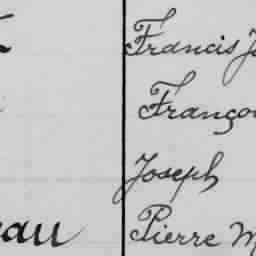 Francis J
Franço
Joseph
eau Pierre M